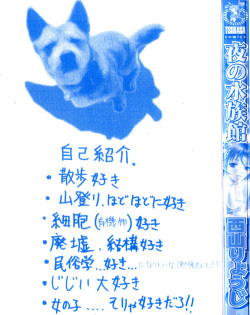 自己紹介.
・散歩好き
・山登り、ほどほどに好き
・細胞(有機物)好き
・廃墟、結構好き
・民俗学…好き…になりたいな
・じじい大好き
・女の子….そりゃ好きだろ!!
TSUKASA COMICS
夜の水族館
西山りょうじ